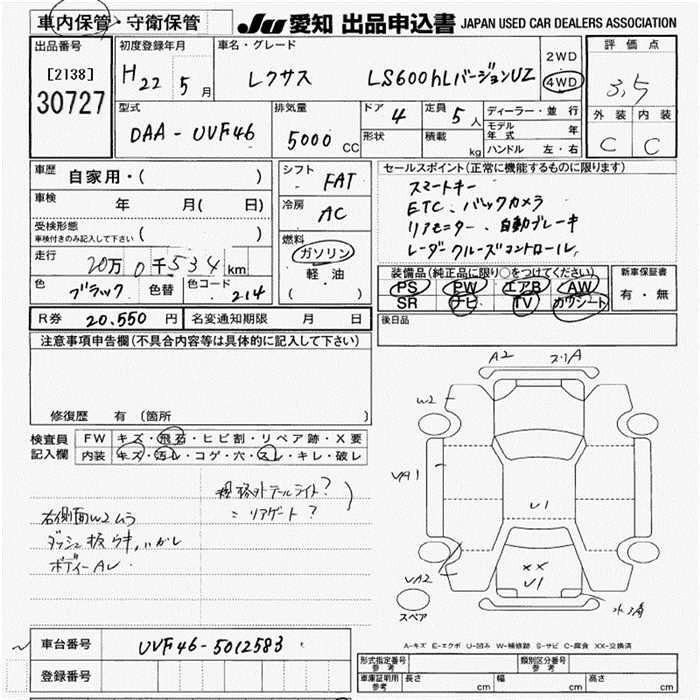 車内保管・守衛保管
JU 愛知 出品申込書 JAPAN USED CAR DEALERS ASSOCIATION
出品番号
[2138]
30727
初度登録年月
H22 5月
車名・グレード
レクサス LS600hLバージョンUZ
2WD
4WD
評価点
3,5
外装 内装
C C
型式
DAA-UVF46
排気量
5000 CC
ドア 4
形状
定員 5人
積載 kg
ディーラー・並行
モデル年式 年
ハンドル 左・右
車歴 自家用・( )
車検 年 月( 日)
受検形態
車検付きのみ記入して下さい ( )
走行 20万0千534km
色 ブラック 色替 色コード 214
シフト FAT
冷房 AC
燃料
ガソリン
軽・油
( )
セールスポイント(正常に機能するものに限ります)
スマートキー
ETC、バックカメラ
リアモニター、自動ブレーキ
レーダークルーズコントロール
装備品(純正品に限り○をつけてください)
PS PW エアB AW
SR ナビ TV カワシート
新車保証書
有・無
後日品
R券 20,550円 名変通知期限 月 日
注意事項申告欄(不具合内容等は具体的に記入して下さい)
修復歴 有 (箇所 )
検査員記入欄
FW キズ・飛石・ヒビ割・リペア跡・X要
内装 キズ・汚レ・コゲ・穴・スレ・キレ・破レ
規格外テールライト?
= リアゲート?
右側面W2ムラ
ダッシュ板ウキ、いかし
ボディーAレ
A2 スリA
W2
VA1
U1
XX
U1
VA2
スペア
A-キズ E-エクボ U-凹み W-補修跡 S-サビ C-腐食 XX-交換済
車台番号 UVF46-5012583
登録番号
形式指定番号
参考
類別区分番号
参考
車庫証明用
参考
長さ cm 幅 cm 高さ cm